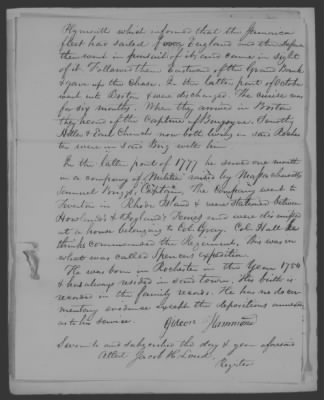 Plymouth which informed that the Jamaica
fleet had sailed for England and the defence
then went in pursuit of it, and came in sight
of it. Followed them Eastward of the Grand Bank
& gave up the chase. In the latter part of October
went into Boston & were discharged. The cruise was
for six months. When they arrived in Boston
they heard of the Capture of Burgoyne. Timothy
Hiller & Earl Church now both living in said Roches
ter were in said Brig with him
In the latter part of 1777 he served one month
in a company of Militia raised by Massachusetts
Samuel Briggs, Captain. The Company went to
Tiverton in Rhode Island & were stationed between
Howland's & Fogland's Ferries and were dismissed
at a house belonging to Col. Gray. Col. Hall he
thinks commanded the Regiment. This was in
what was called Spencers expedition.
He was born in Rochester in the Year 1754
& has always resided in said town. His birth is
recorded in the family records. He has no docu
mentary evidence except the depositions annexed
as to his service.
Gideon Hammond
Sworn to and subscribed the day & year aforesaid
Attest Jacob H. Loud.
Register